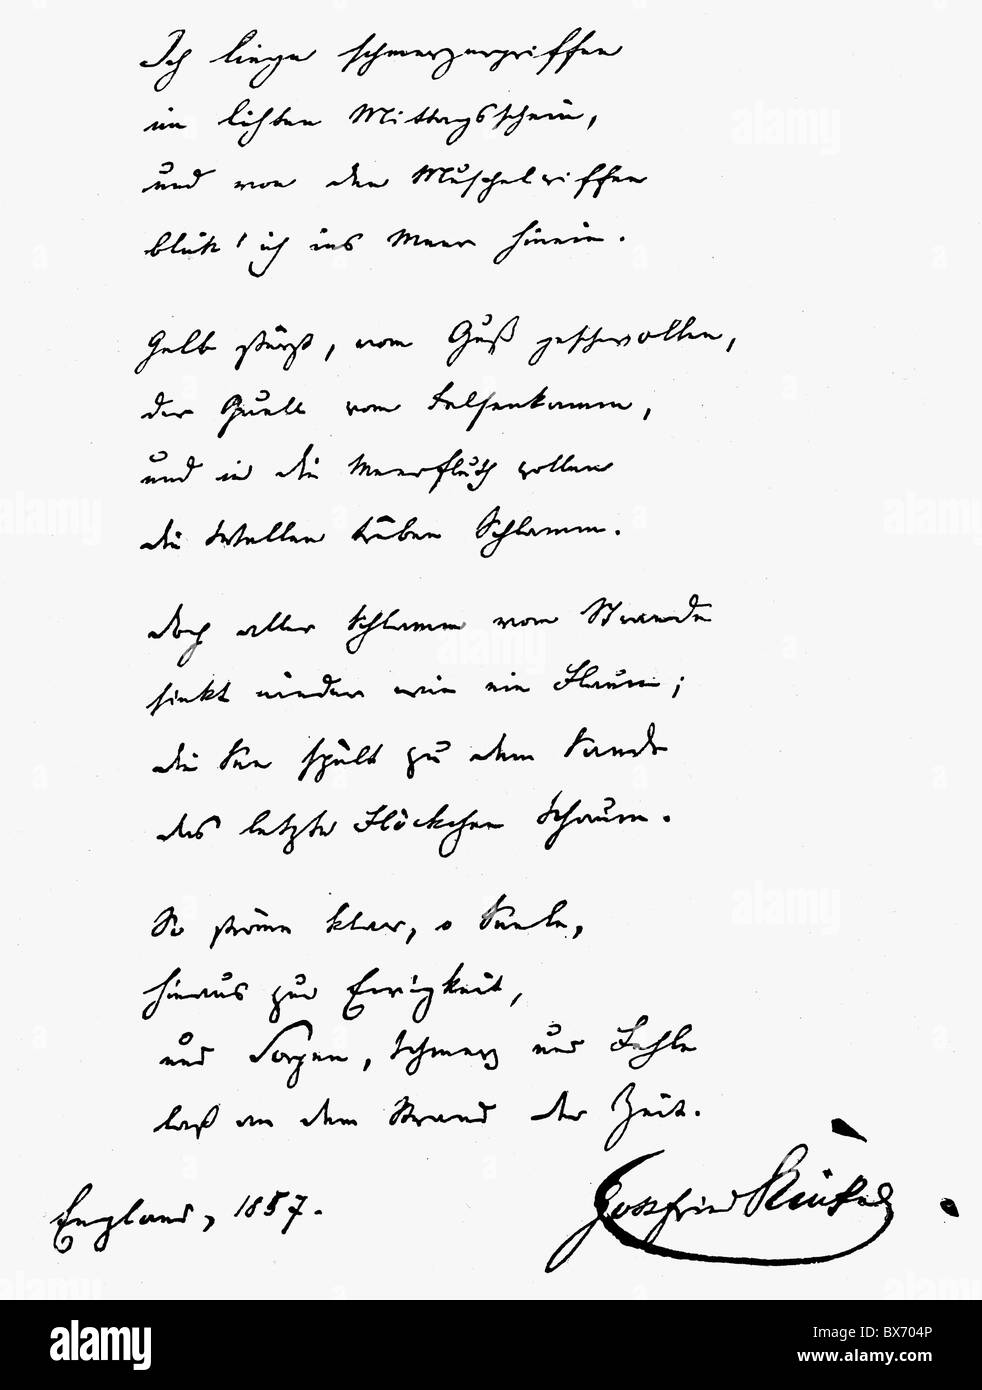 Ich liege schmerzergriffen
im lichten Mittagsschein,
und von den Muschelriffen
blick' ich ins Meer hinein.
Gelb stürzt, vom Guß geschwollen,
der Quell vom Felsenkamm,
und in die Meerfluth rollen
die Wellen trüben Schlamm.
doch aller Schlamm vom Strande
sinkt nieder wie ein Flaum;
die See spült zu dem Sande
das letzte Flöckchen Schaum.
So ströme klar, o Seele,
hinaus zur Ewigkeit,
und Sorgen, Schmerz und Fehle
laß an dem Strand der Zeit.
England, 1857.
Gottfried Kinkel.
alamy
BX704P
www.alamy.com